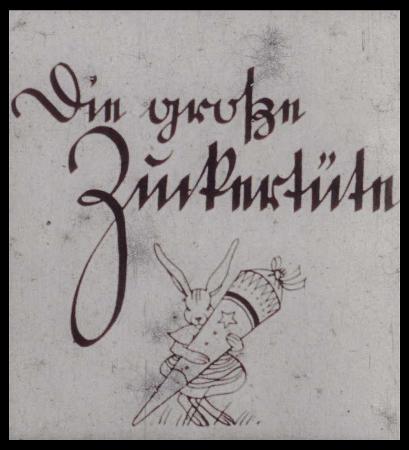 Die große
Zuckertüte